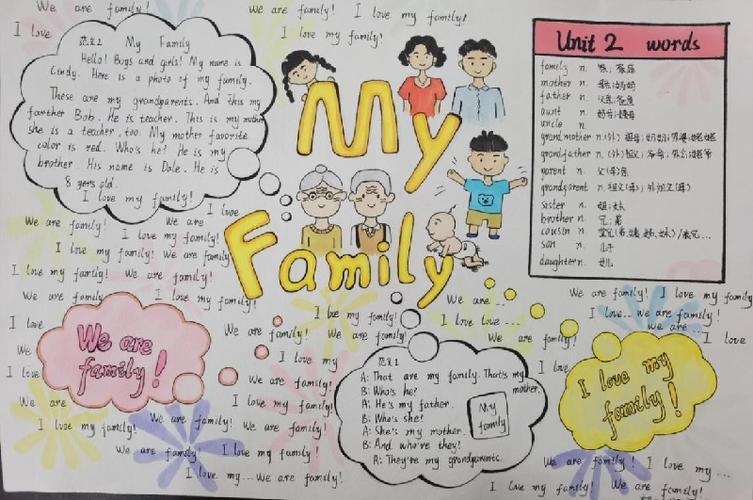 We are family!
I love
We are family! I love my family!
I love my family!
范文2 My Family
Hello! Boys and girls! My name is
Cindy. Here is a photo of my family.
These are my grandparents. And this my
farther Bob. He is teacher. This is my mother
she is a teacher, too. My mother favorite
color is red. Who's he? He is my
brother. His name is Dale. He is
8 years old.
I love my family!
My
Family
Unit 2 words
family n. 家;家庭
mother n.
father n. 父亲;爸爸
aunt n.
uncle n.
grandmother n.(外)祖母;奶奶;外婆;姥姥
grandfather n.(外)祖父;爷爷;外公;姥爷
parent n. 父(母)亲
grandparent n. 祖父(母);外祖父(母)
sister n. 姐;妹
brother n. 兄;弟
cousin n.
son n. 儿子
daughter n. 女儿
I love
We are family! We are
I love my family!
I love my family! We are family
I love my family! We are family!
We are family! I love my family!
I love
We
I love
We are
I love my family! We are family!
We are family! I love my family!
I love my ... We are family!
We are family!
I love my family!
We are family!
We are family!
I love my
We are family!
I love my family!
We are family!
I love my family!
We are family!
We are ..
I love love ...
We are family!
I love
范文1
A: That are my family. That's my
mother.
B: Who's he?
A: He's my father.
B: Who's she?
A: She's my mother.
B: And who're they?
A: They're my grandparents.
My
family
We are family! I love my family
I love.. we are family!
We are ...
I love
I love my
family!
We are family! I love my ...
I love my family! We are family!